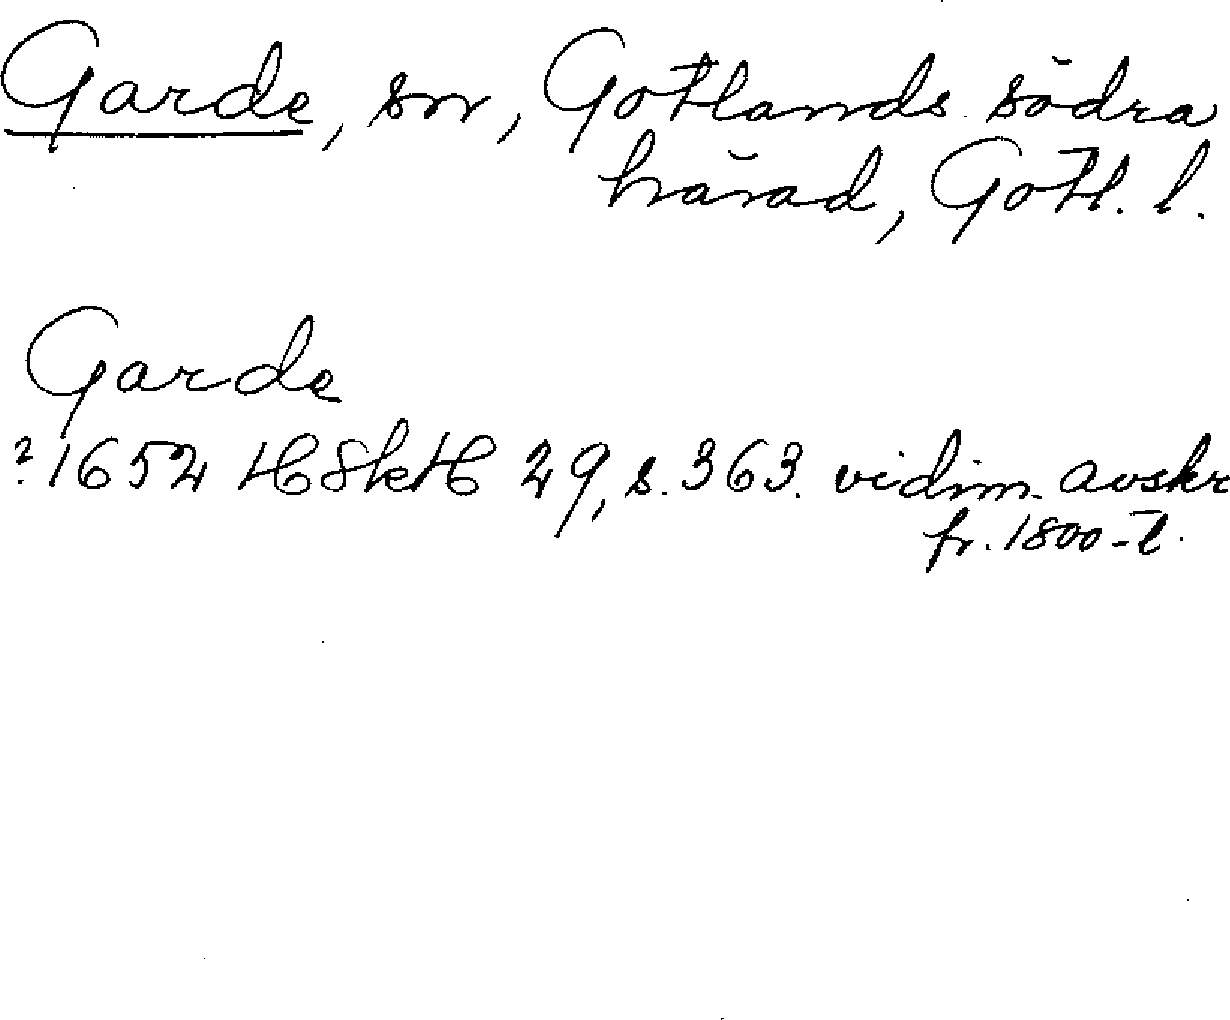 Garde, sn, Gotlands södra
härad, Gotl. l.
Garde
? 1652 HSkH 29, s. 363. vidim. avskr
fr. 1800-t.